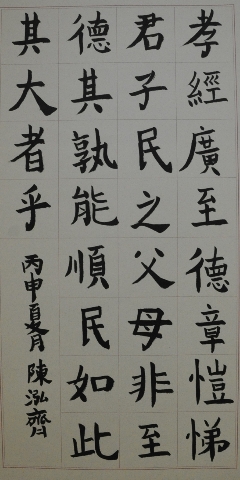 孝經廣至德章愷悌
君子民之父母非至
德其孰能順民如此
其大者乎
丙申夏月 陳泓齊